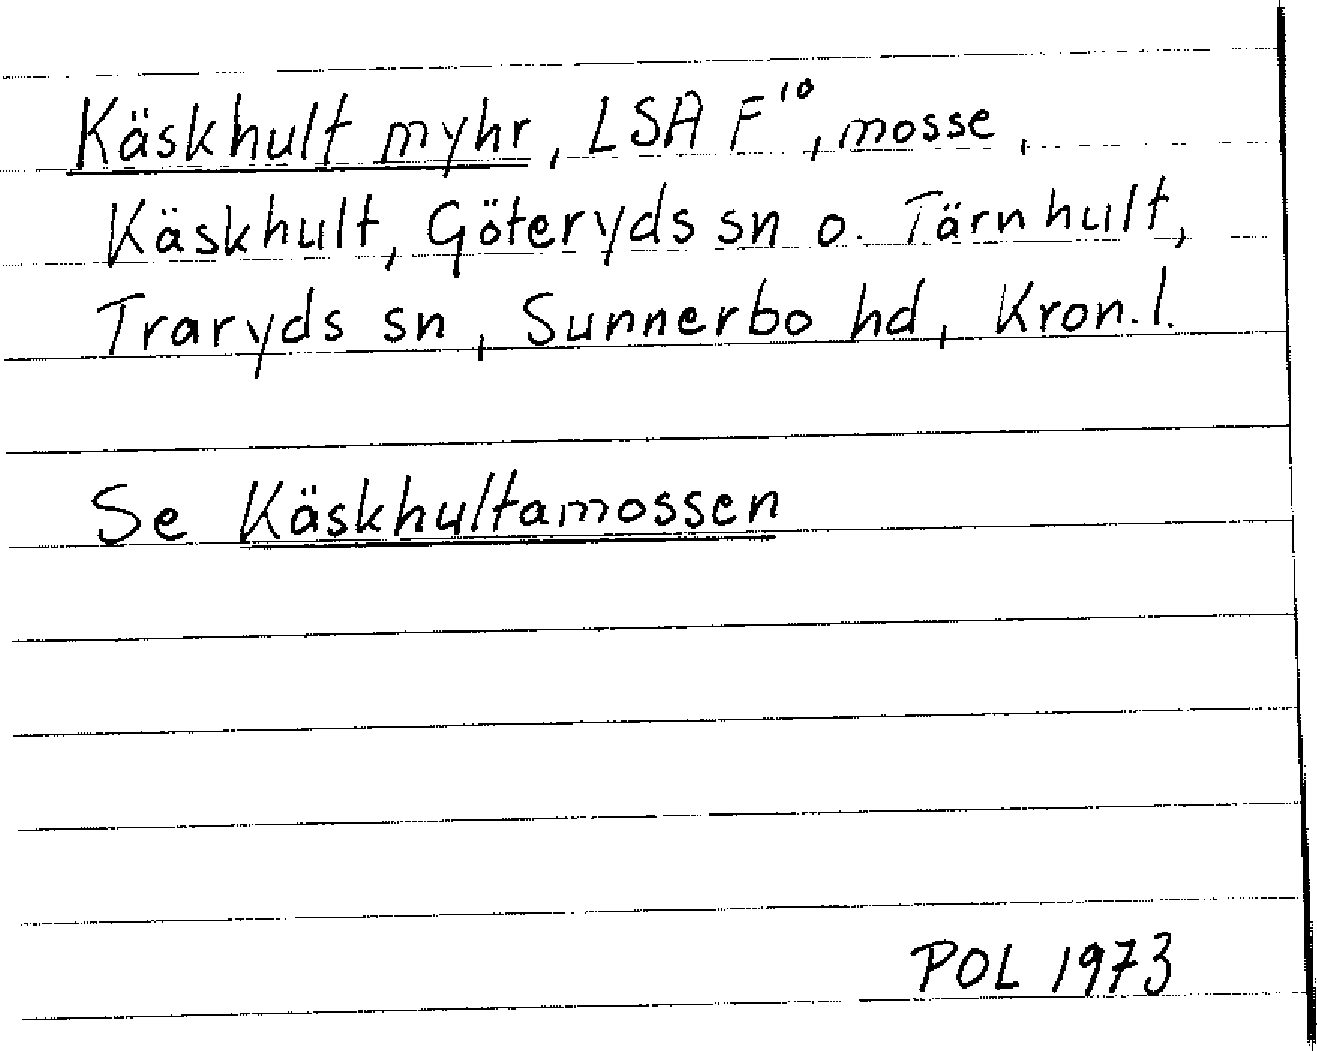 Käskhult myhr, LSA F¹⁰, mosse,
Käskhult, Göteryds sn o. Tärnhult,
Traryds sn, Sunnerbo hd, Kron.l.
Se Käskhultamossen
POL 1973